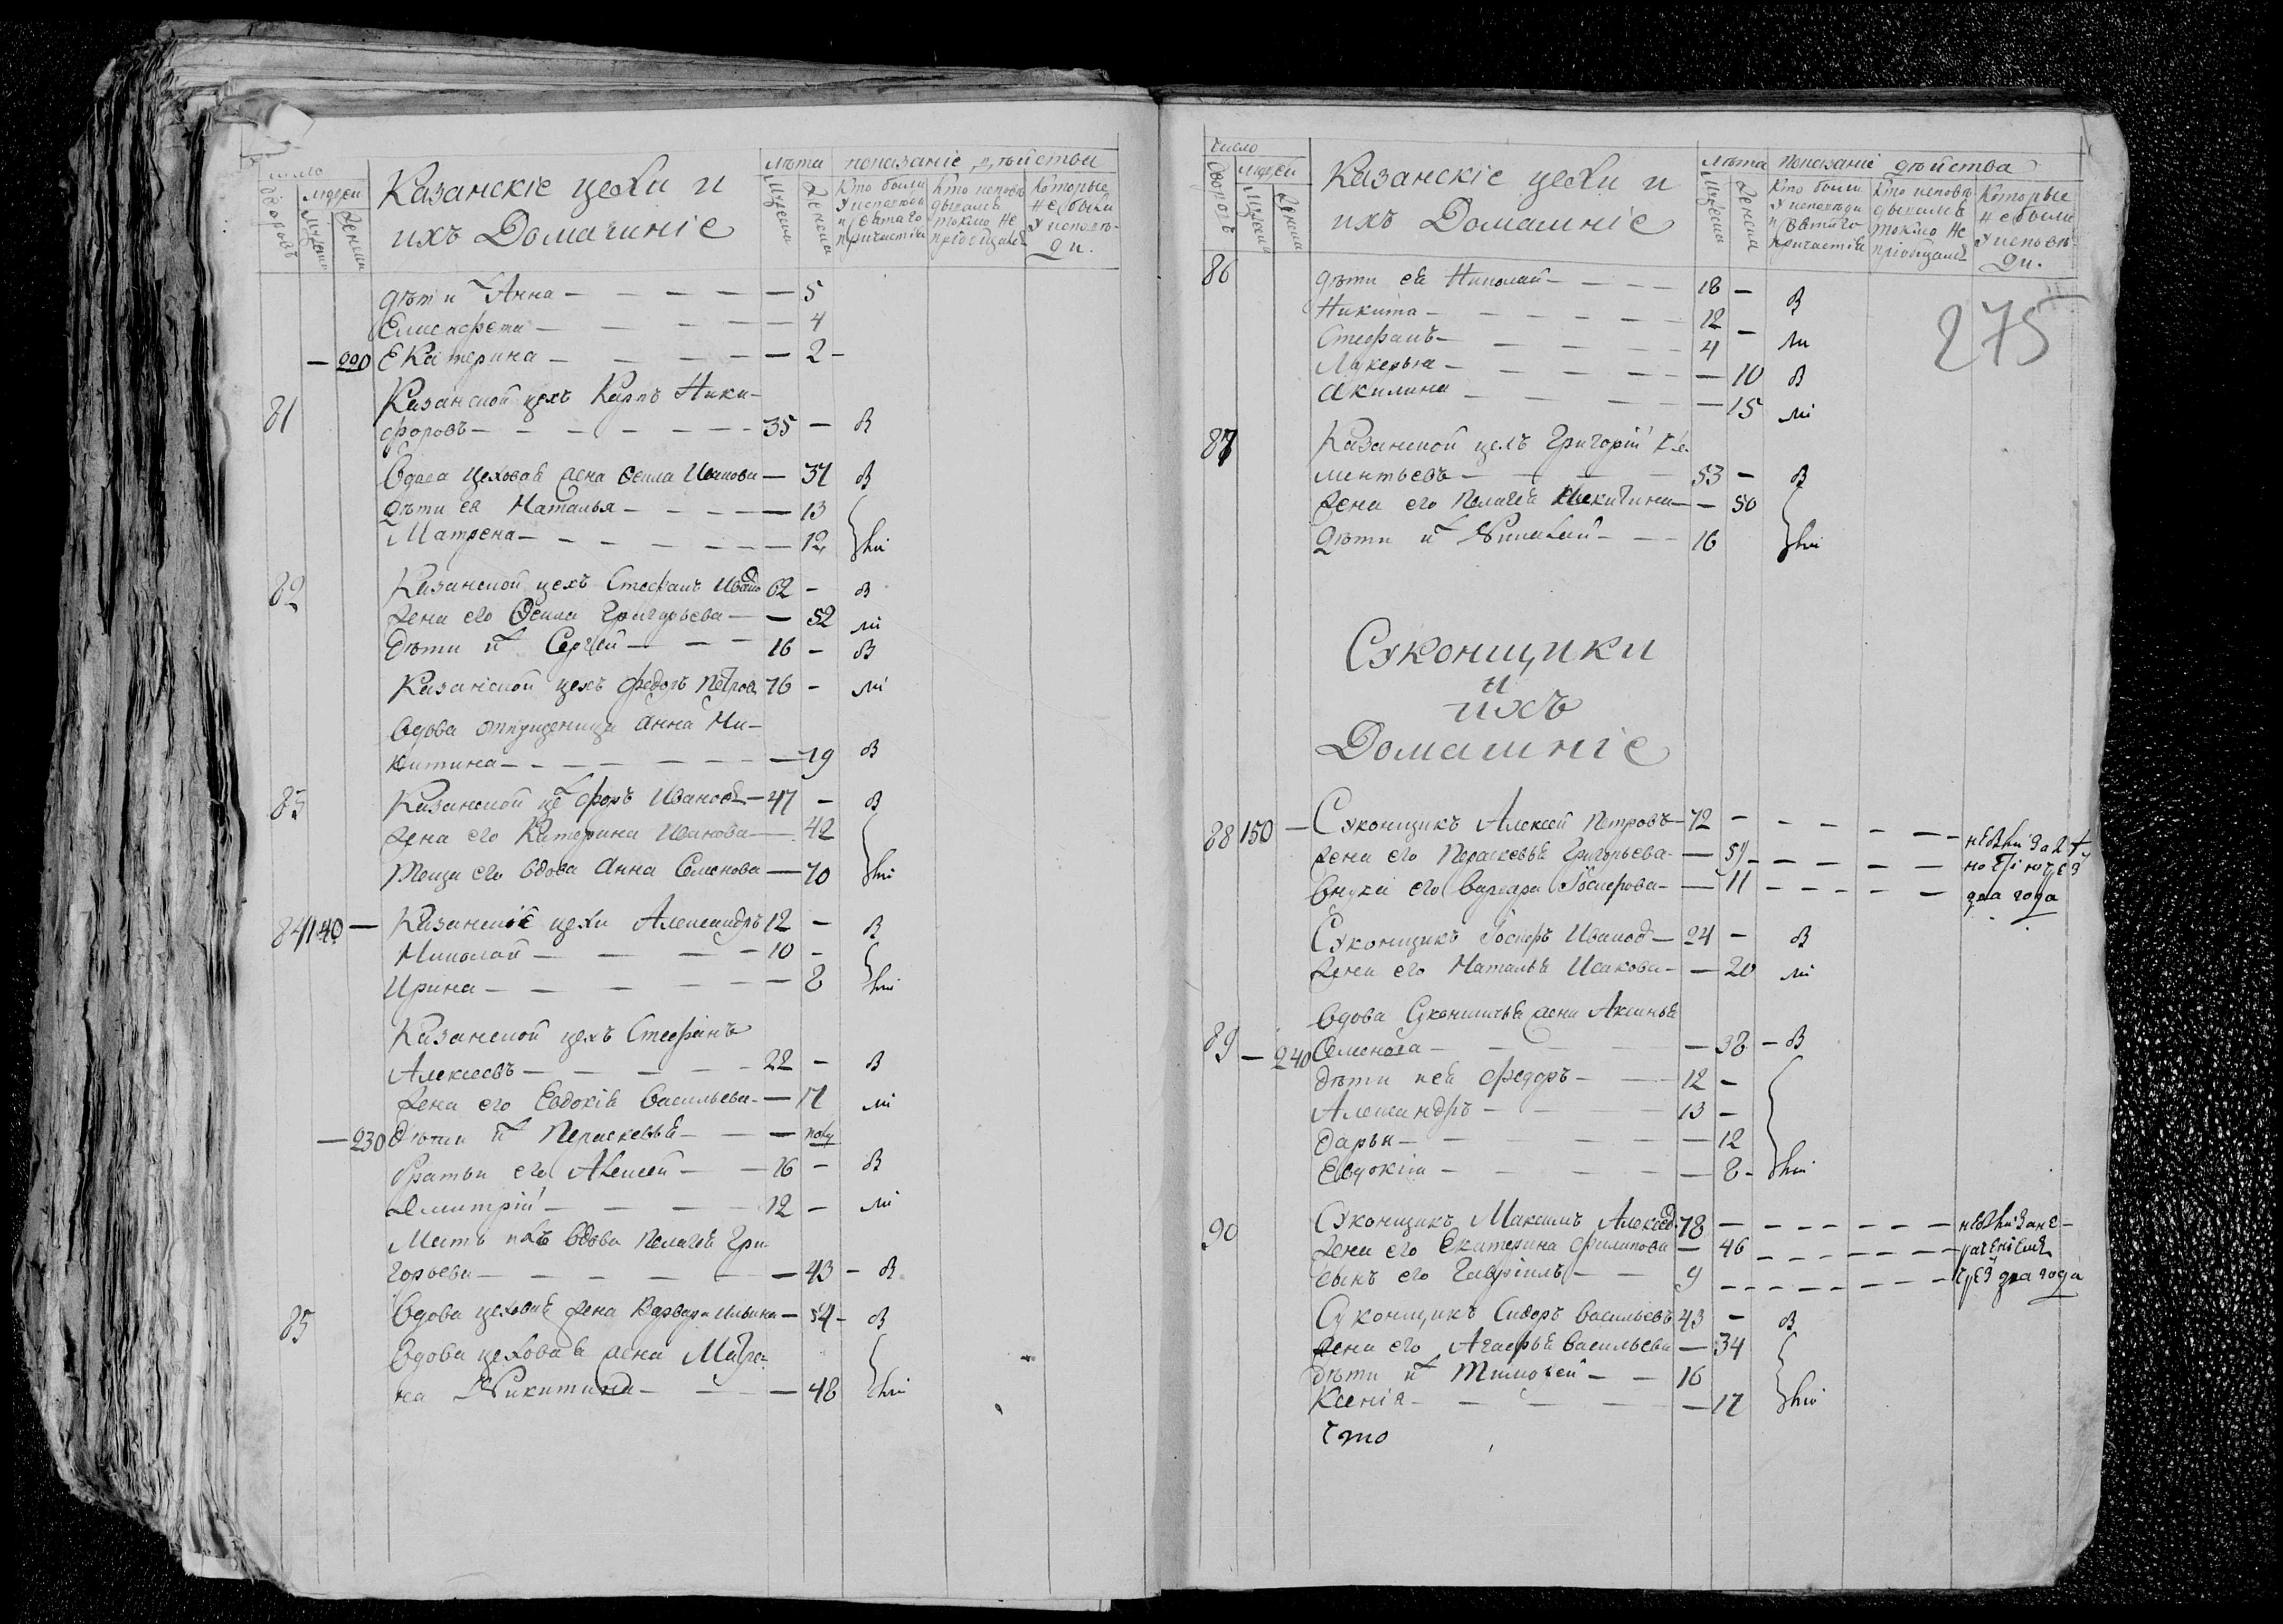 число
дворовъ
людей
мужеска
женска
Казанскіе цехи и
ихъ Домашніе
лѣта
мужеска
женска
показаніе дѣйства
Кто были у исповѣди и святаго причастія
Кто исповѣдывался токмо не пріобщался
Которые не были у исповѣди.
дѣти ихъ Анна — 5
Елисафета — 4
— 220 Екатерина — 2 —
81 Казанской цехъ Карпъ Ники-
форовъ — 35 — В
Вдова цеховая жена Ѳекла Иванова — 37 В
дѣти ея Наталья — 13
Матрена — 12
82 Казанской цехъ Стефанъ Ивано 62 — В
жена его Ѳекла Григорьева — 52
Дѣти ихъ Сергѣй — 16 — В
Казанской цехъ Федоръ Петров 76 —
Вдова отпущеница Анна Ни-
китина — 19 В
83 Казанской цех Ивановъ — 47 — В
жена его Катерина Иванова — 42
теща его вдова Анна Семенова — 70
84 140 — Казанскіе цехи Александръ 12 — В
Николай — 10 —
Ирина — 8
Казанской цехъ Стефанъ
Алексеевъ — 22 — В
жена его Евдокія Васильева — 17
— 230 Дѣти ихъ Параскевья — полу
братьи его Алексей — 16 — В
Димитрій — 12 —
Мать ихъ вдова Пелагея Гри-
горьева — 43 — В
85 Вдова цеховая жена Варвара Ильина — 54 — В
Вдова цеховая жена Матре-
на Никитина — 48
число
дворовъ
людей
мужеска
женска
Казанскіе цехи и
ихъ Домашніе
лѣта
мужеска
женска
показаніе дѣйства
Кто были у исповѣди и святаго причастія
Кто исповѣдывался токмо не пріобщался
Которые не были у исповѣди.
275
86 дѣти ея Николай — 18 — В
Никита — 12 —
Стефанъ — 4
Лукерья — 10 В
Акилина — 15
87 Казанской цехъ Григорій Кле-
ментьевъ — 53 — В
жена его Пелагея Никитина — 50
Дѣти ихъ Николай — 16
Суконщики
и
ихъ
Домашніе
88 150 — Суконщикъ Алексей Петровъ — 72 —
жена его Параскевья Григорьева — 59 —
Внука его Варвара Іосифова — 11 —
два года
Суконщикъ Іосифъ Иванов — 24 — В
жена его Наталья Исакова — 20
Вдова Суконшичья жена Аксинья
89 — 240 Семенова — 38 — В
Дѣти ией Федоръ — 12 —
Александръ — 13 —
Дарья — 12
Евдокіа — 8 —
90 Суконщикъ Максимъ Алексеев 78 —
жена его Екатерина Филипова — 46 —
сынъ его Гавріилъ — 9 —
два года
Суконщикъ Сидоръ Васильевъ 43 — В
жена его Агафья Васильева — 34
Дѣти ихъ Тимоѳей — 16
Ксенія — 17
Что